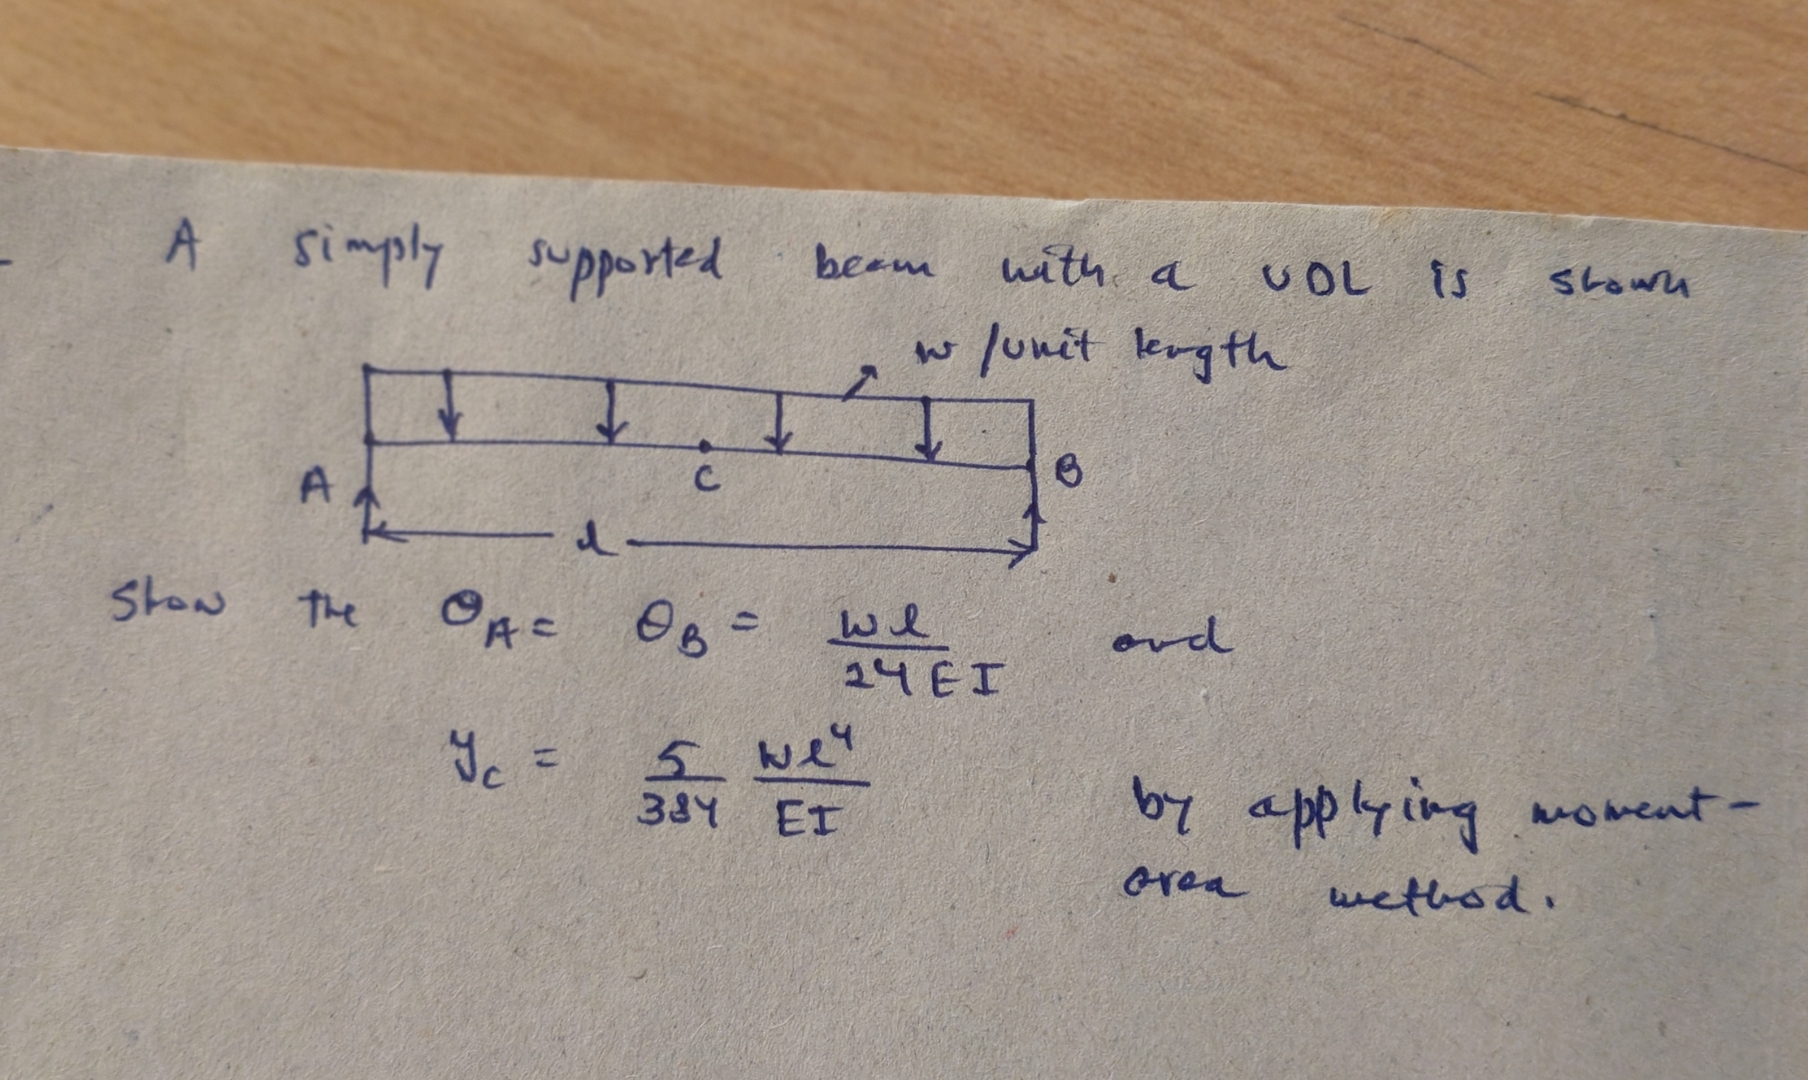 A simply supported beam with a UDL is shown
w /unit length
A C B
l
Show the θA = θB = wl/24EI and
yc = 5/384 wl⁴/EI by applying moment-
area method.